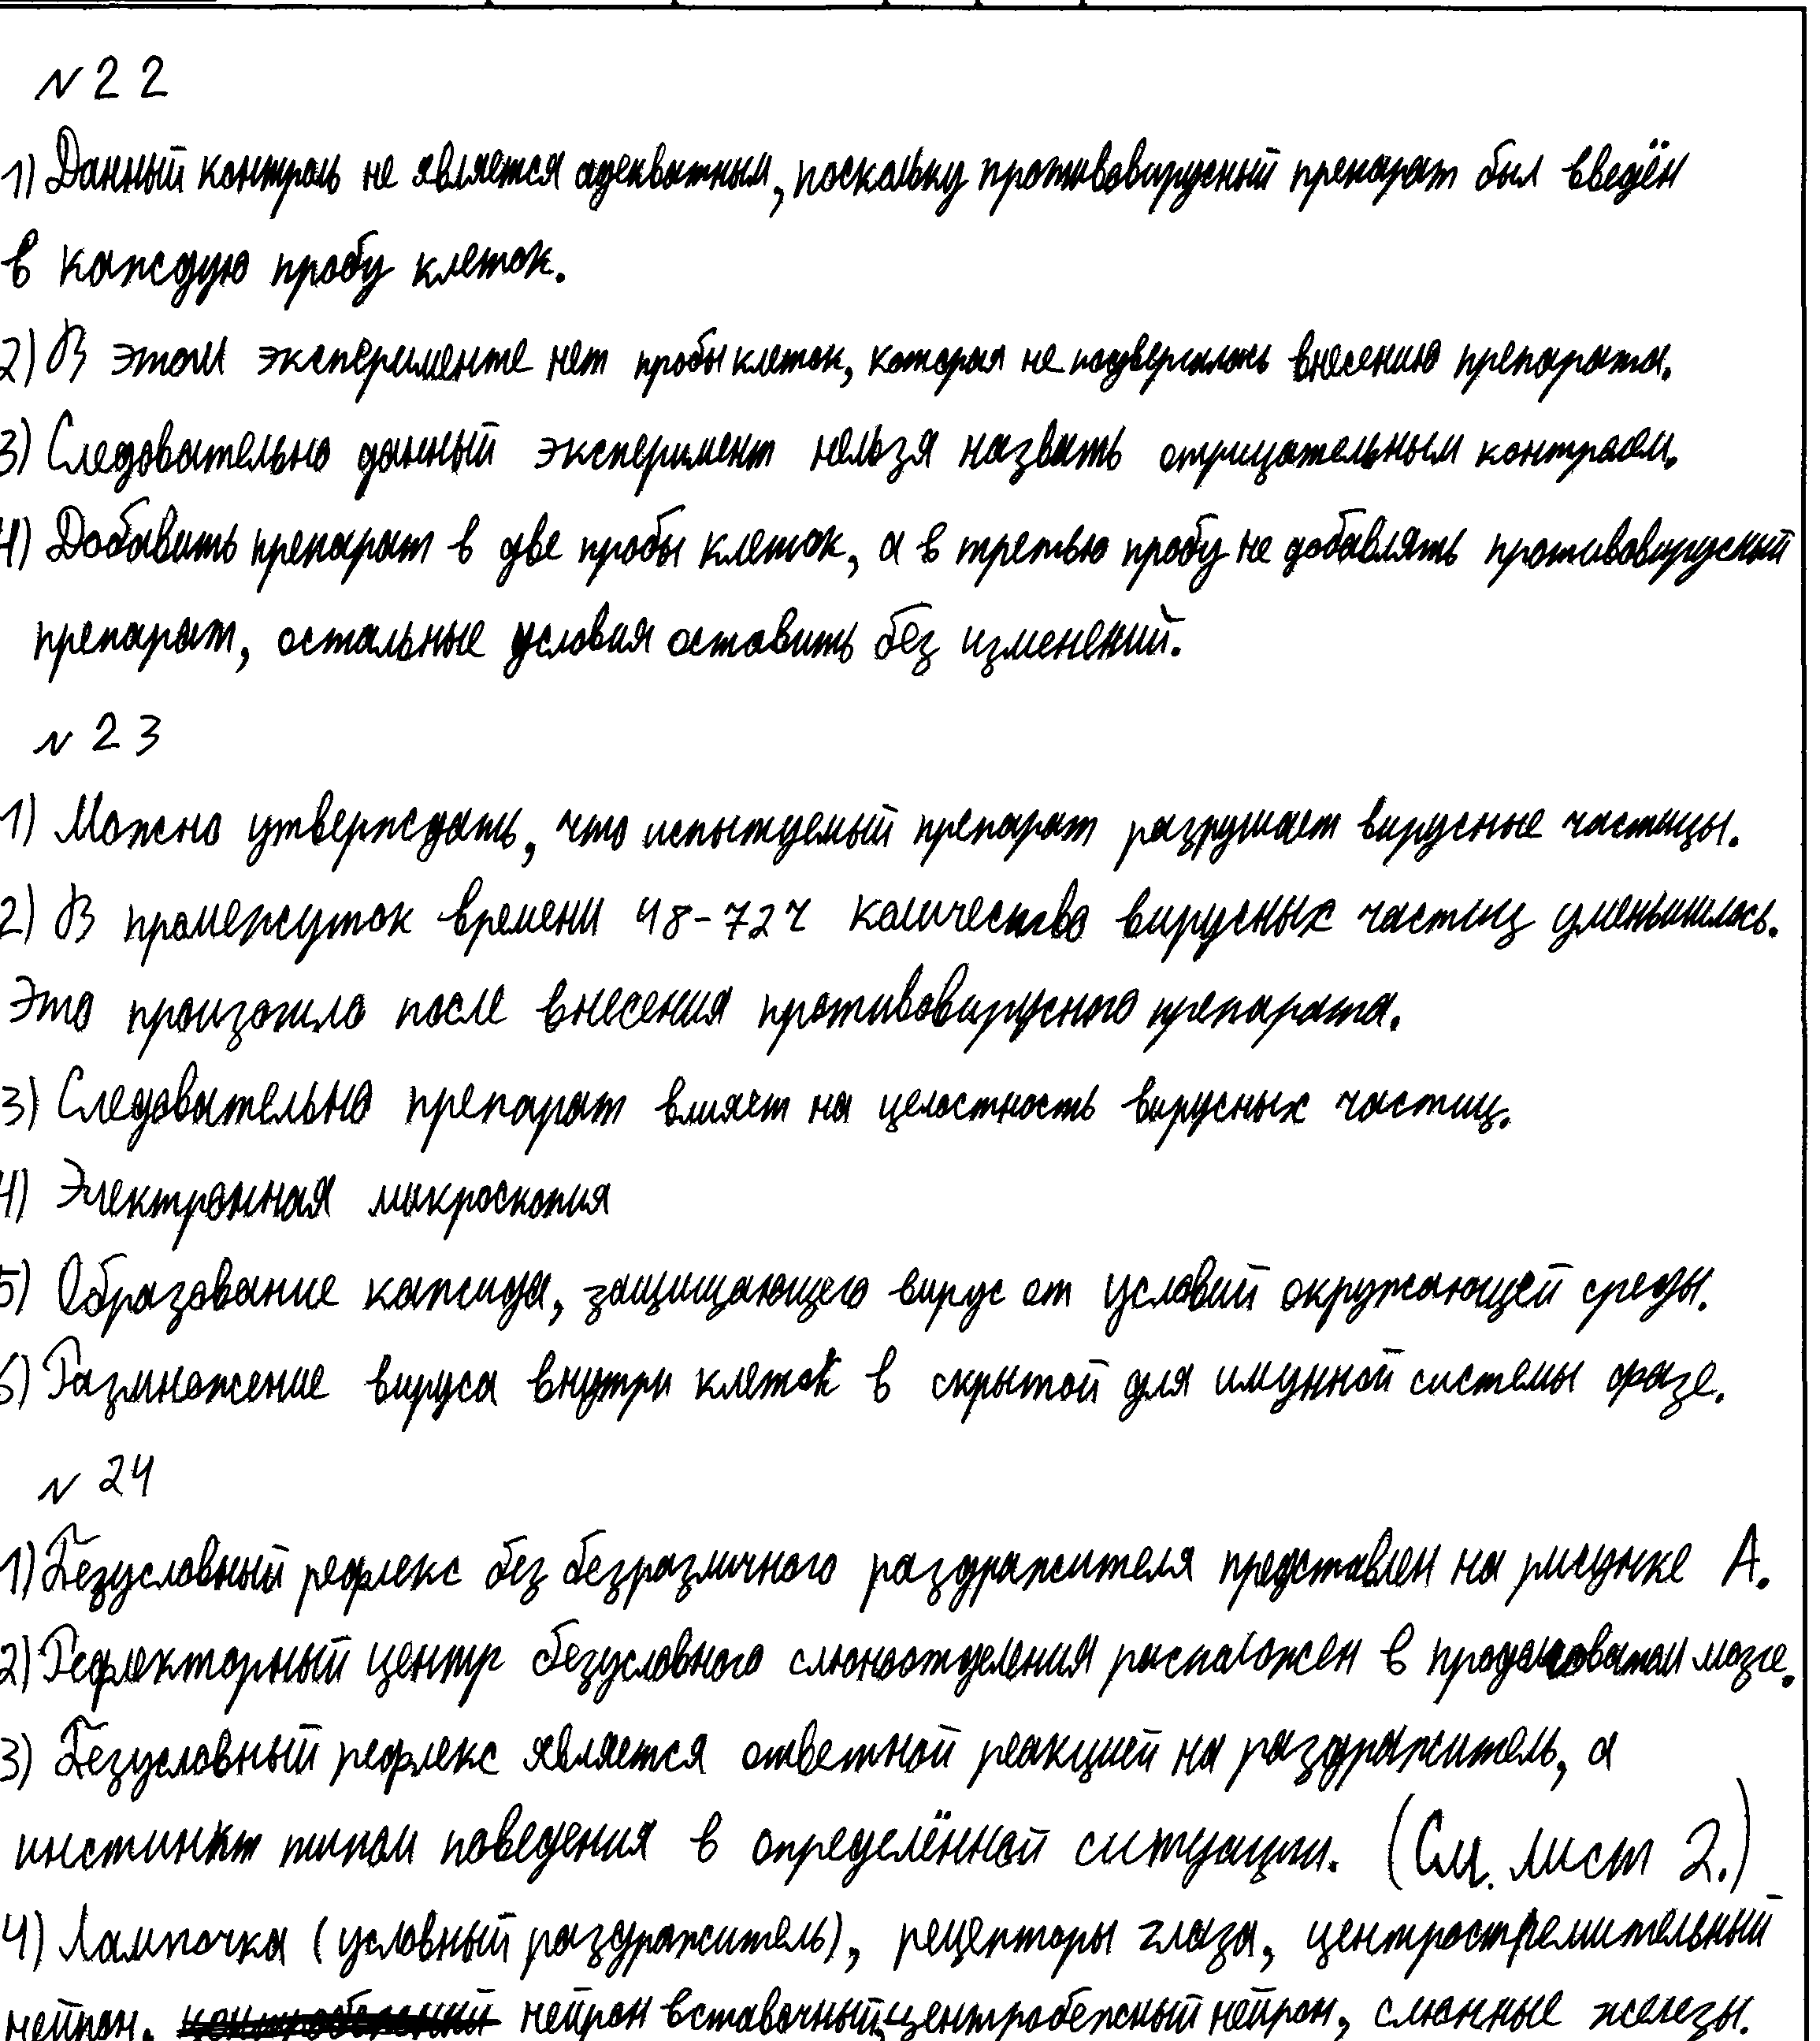 №22
1) Данный контроль не является адекватным, поскольку противовирусный препарат был введён
в каждую пробу клеток.
2) В этом эксперименте нет пробы клеток, которая не подвергалась внесению препарата.
3) Следовательно данный эксперимент нельзя назвать отрицательным контролем.
4) Добавить препарат в две пробы клеток, а в третью пробу не добавлять противовирусный
препарат, остальные условия оставить без изменений.
№23
1) Можно утверждать, что испытуемый препарат разрушает вирусные частицы.
2) В промежуток времени 48-72ч количество вирусных частиц уменьшилось.
Это произошло после внесения противовирусного препарата.
3) Следовательно препарат влияет на целостность вирусных частиц.
4) Электронная микроскопия
5) Образование капсида, защищающего вирус от условий окружающей среды.
6) Размножение вируса внутри клеток в скрытой для имунной системы фазе.
№24
1) Безусловный рефлекс без безразличного раздражителя представлен на рисунке А.
2) Рефлекторный центр безусловного слюноотделения расположен в продолговатом мозге.
3) Безусловный рефлекс является ответной реакцией на раздражитель, а
инстинкт типом поведения в определённой ситуации. (См. лист 2.)
4) Лампочка (условный раздражитель), рецепторы глаза, центростремительный
нейрон, нейрон вставочный, центробежный нейрон, слюнные железы.